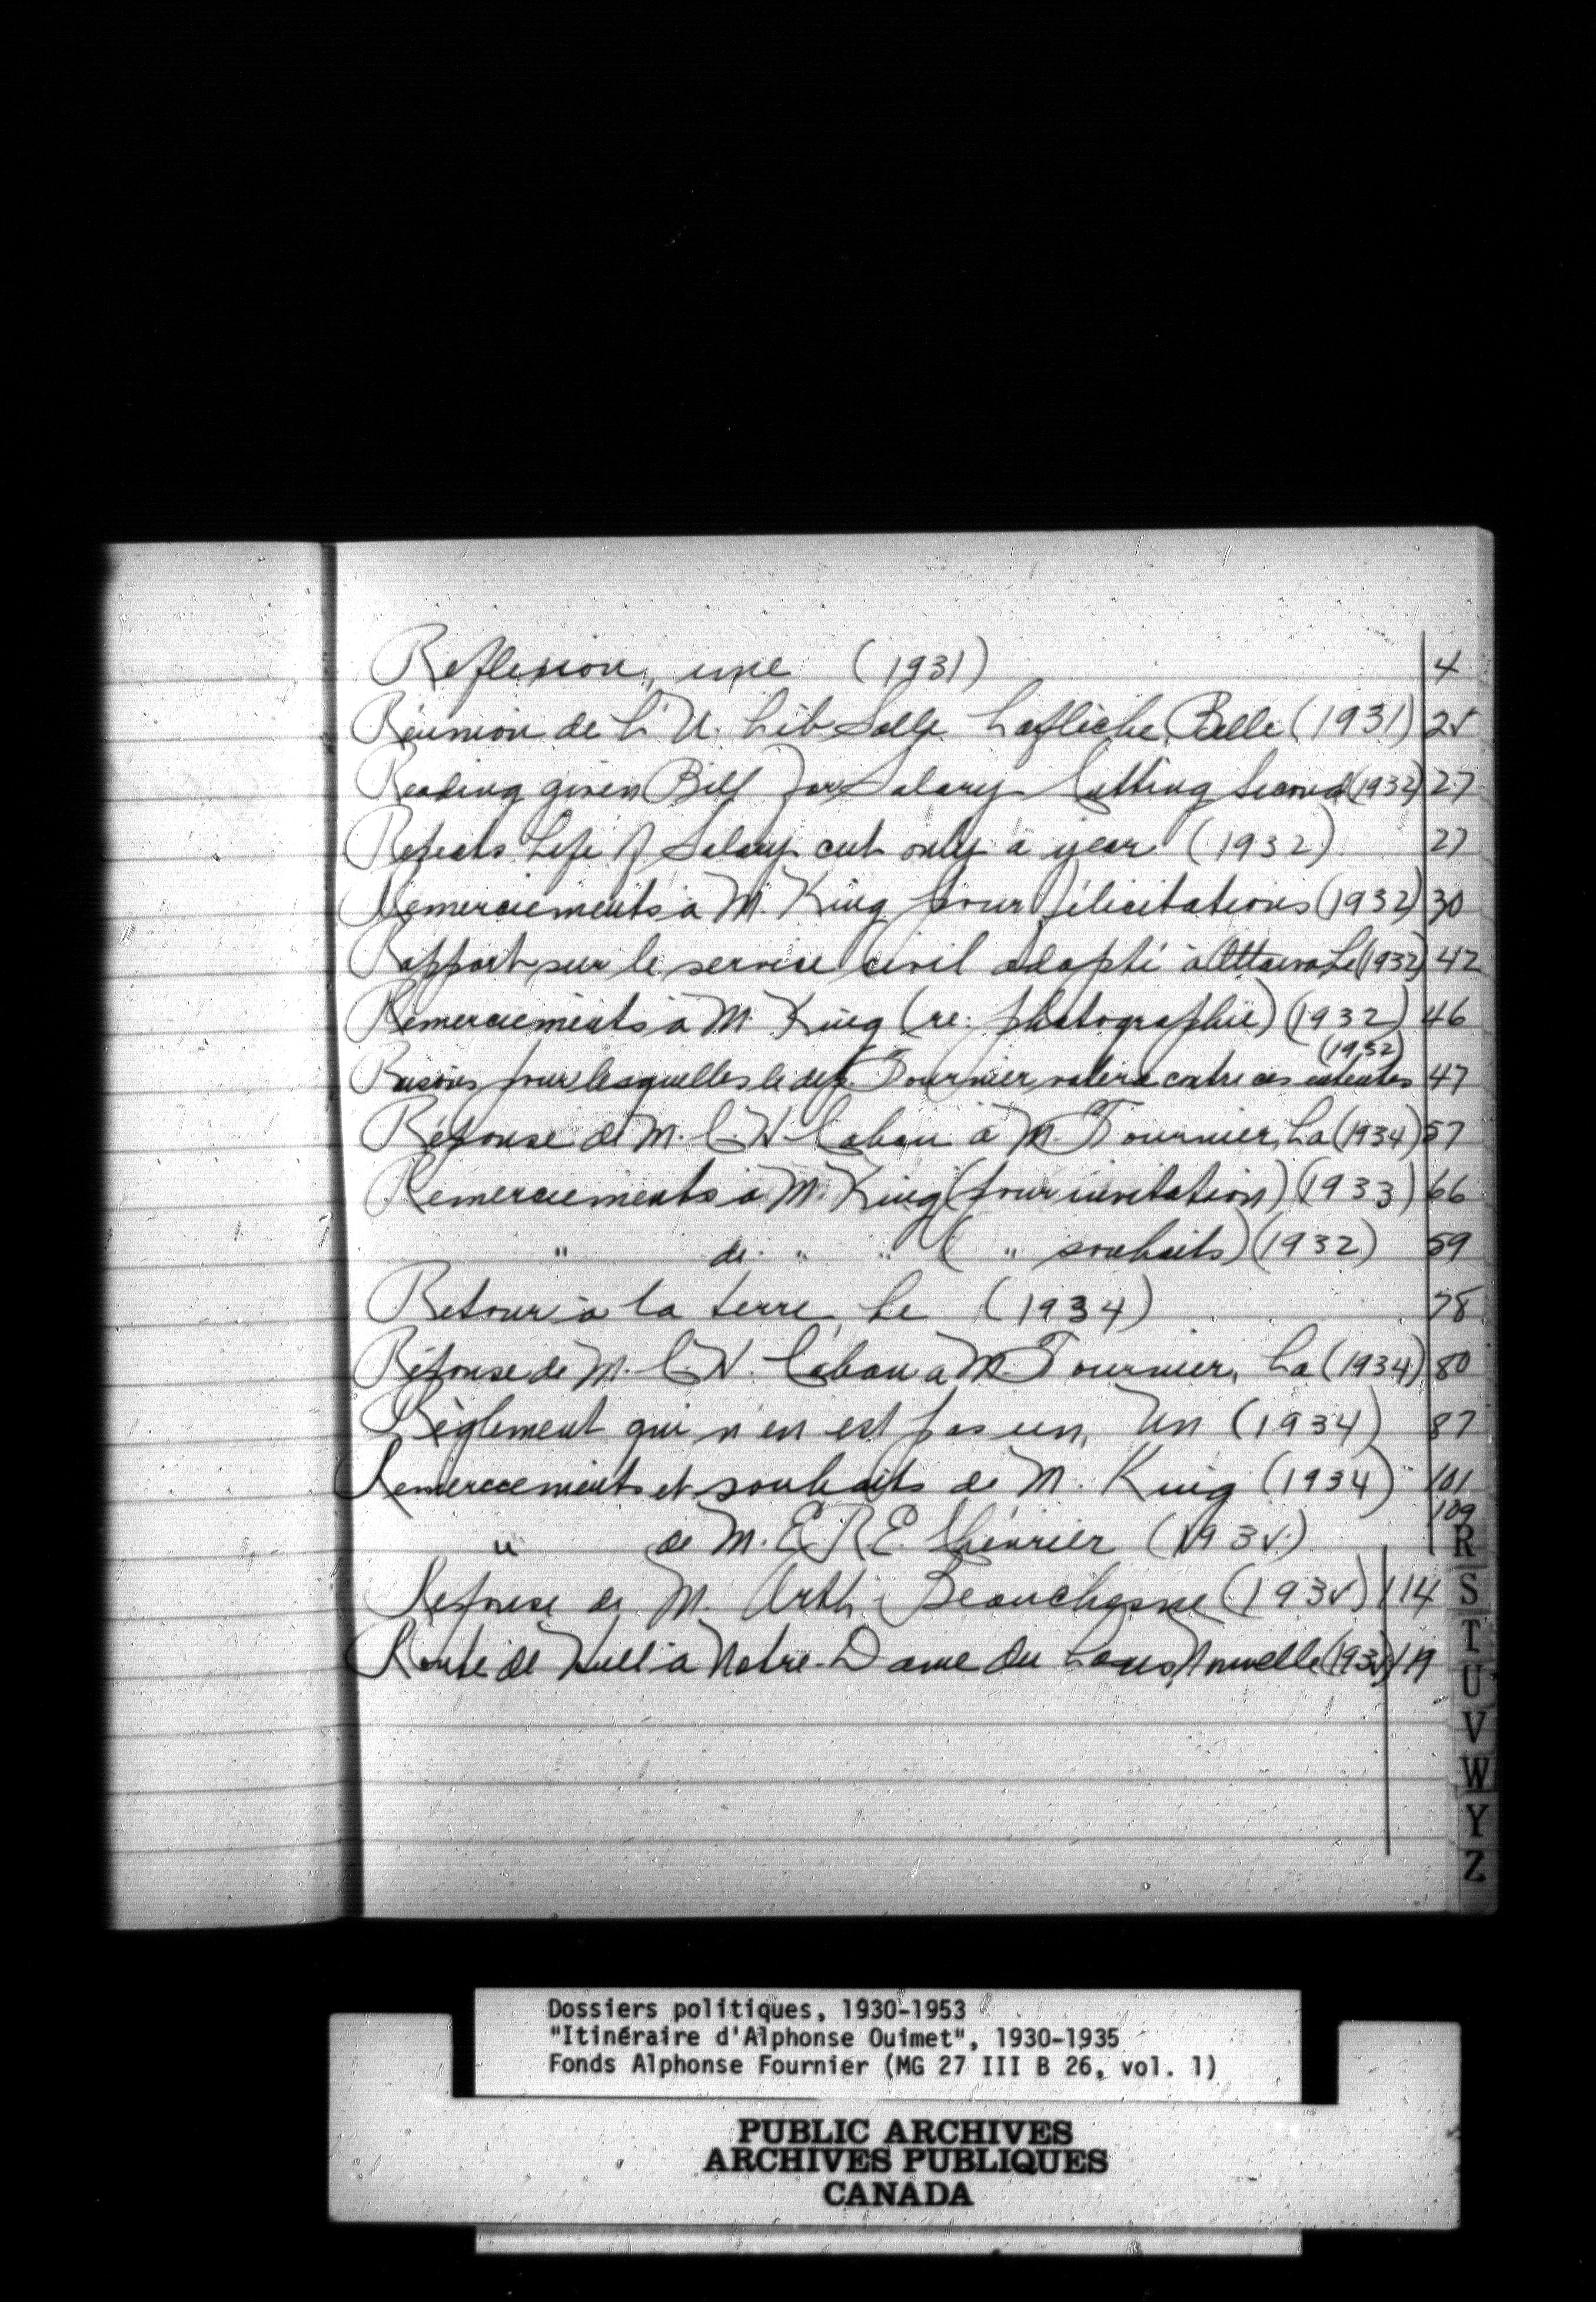 Reflexion, une (1931) 4
Réunion de L'U. Lib Salle Laflèche, Belle (1931) 25
Reading given Bill for Salary Cutting Second (1932) 27
Repeats Life of Salary cut only a year (1932) 27
Remerciements à M. King pour félicitations (1932) 30
Rapport sur le service civil adopté à Ottawa Le (1932) 42
Remerciements à M. King (re: photographie) (1932) 46
(1932)
Raisons pour lesquelles le dep. Fournier votera contre ces ententes 47
Réponse de M. C. H. Cahan à M. Fournier, La (1934) 57
Remerciements à M. King (pour invitation) (1933) 66
" de " " ( " souhaits) (1932) 59
Retour à la terre, Le (1934) 78
Réponse de M. C. H. Cahan à M. Fournier, La (1934) 80
Règlement qui n'en est pas un, Un (1934) 87
Remerciements et souhaits de M. King (1934) 101
109
" de M. E.R.E. Chevrier (1935)
Reponse de M. Arth. Beauchesne (1935) 114
Route de Hull à Notre-Dame du Laus, Nouvelle (1935) 119
R
S
T
U
V
W
Y
Z
Dossiers politiques, 1930-1953
"Itinéraire d'Alphonse Ouimet", 1930-1935
Fonds Alphonse Fournier (MG 27 III B 26, vol. 1)
PUBLIC ARCHIVES
ARCHIVES PUBLIQUES
CANADA